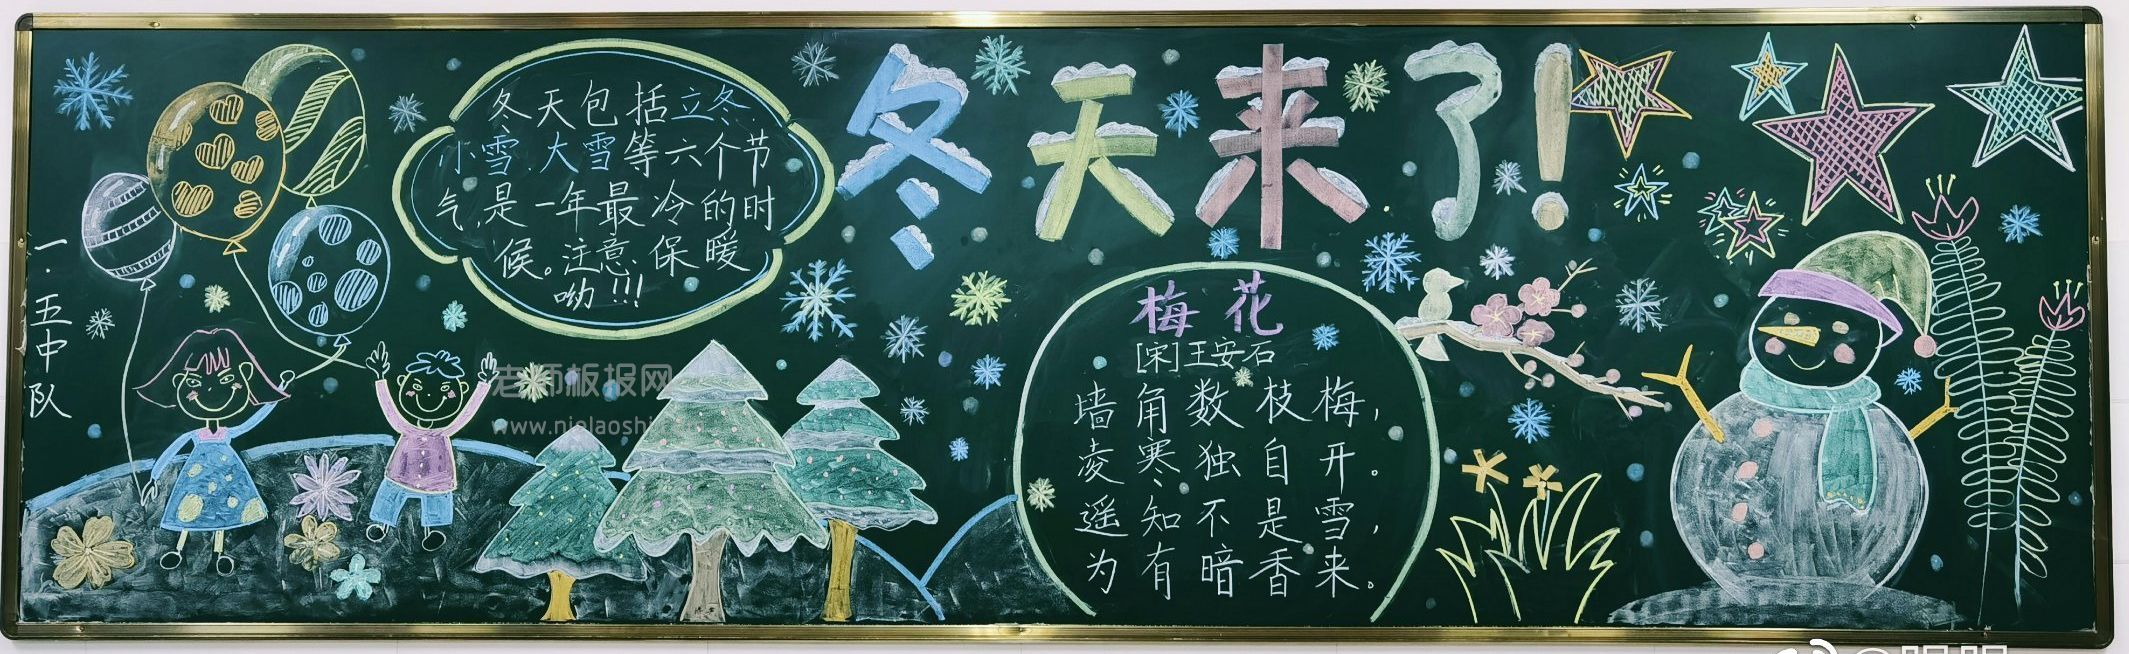 冬天来了!
冬天包括立冬、
小雪、大雪等六个节
气,是一年最冷的时
候。注意、保暖
呦!!!
一.五中队
梅花
[宋]王安石
墙角数枝梅,
凌寒独自开。
遥知不是雪,
为有暗香来。
老师板报网